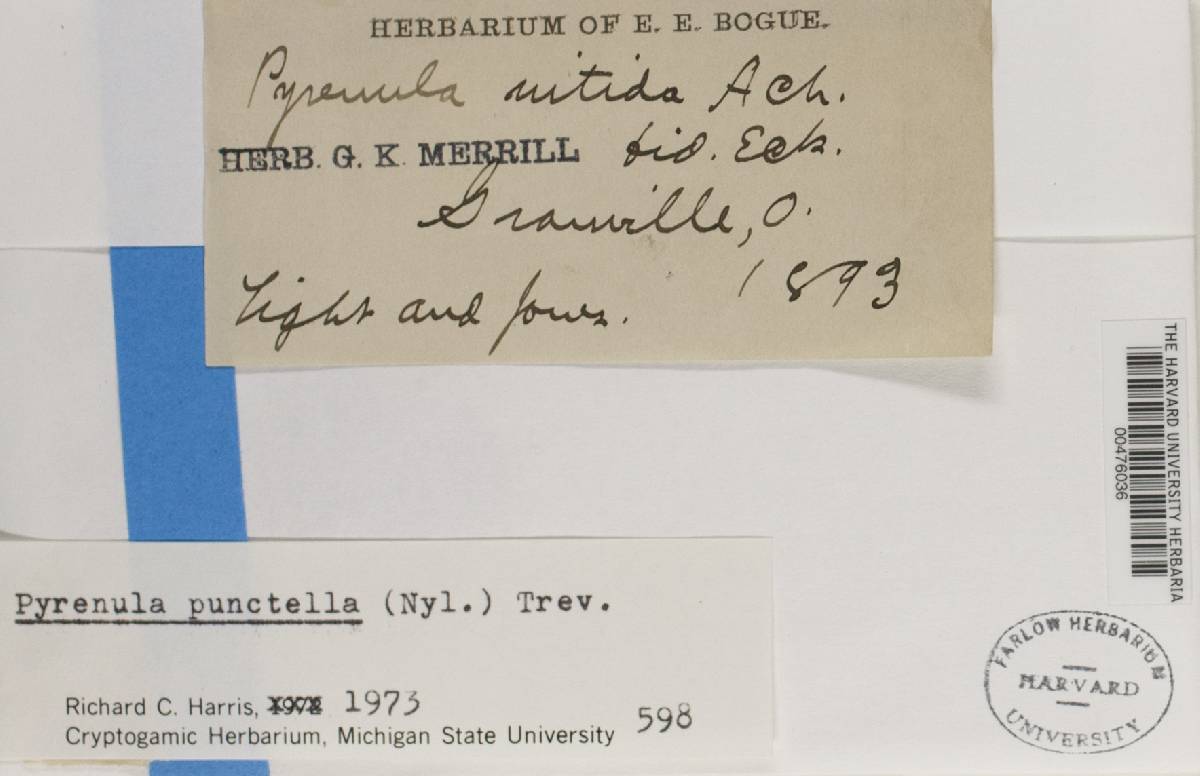 HERBARIUM OF E. E. BOGUE.
Pyrenula nitida Ach.
HERB. G. K. MERRILL fid. Eck.
Granville, O.
Tight and Jones. 1893
THE HARVARD UNIVERSITY HERBARIA
00476036
Pyrenula punctella (Nyl.) Trev.
Richard C. Harris, 1973
Cryptogamic Herbarium, Michigan State University 598
FARLOW HERBARIUM
HARVARD
UNIVERSITY